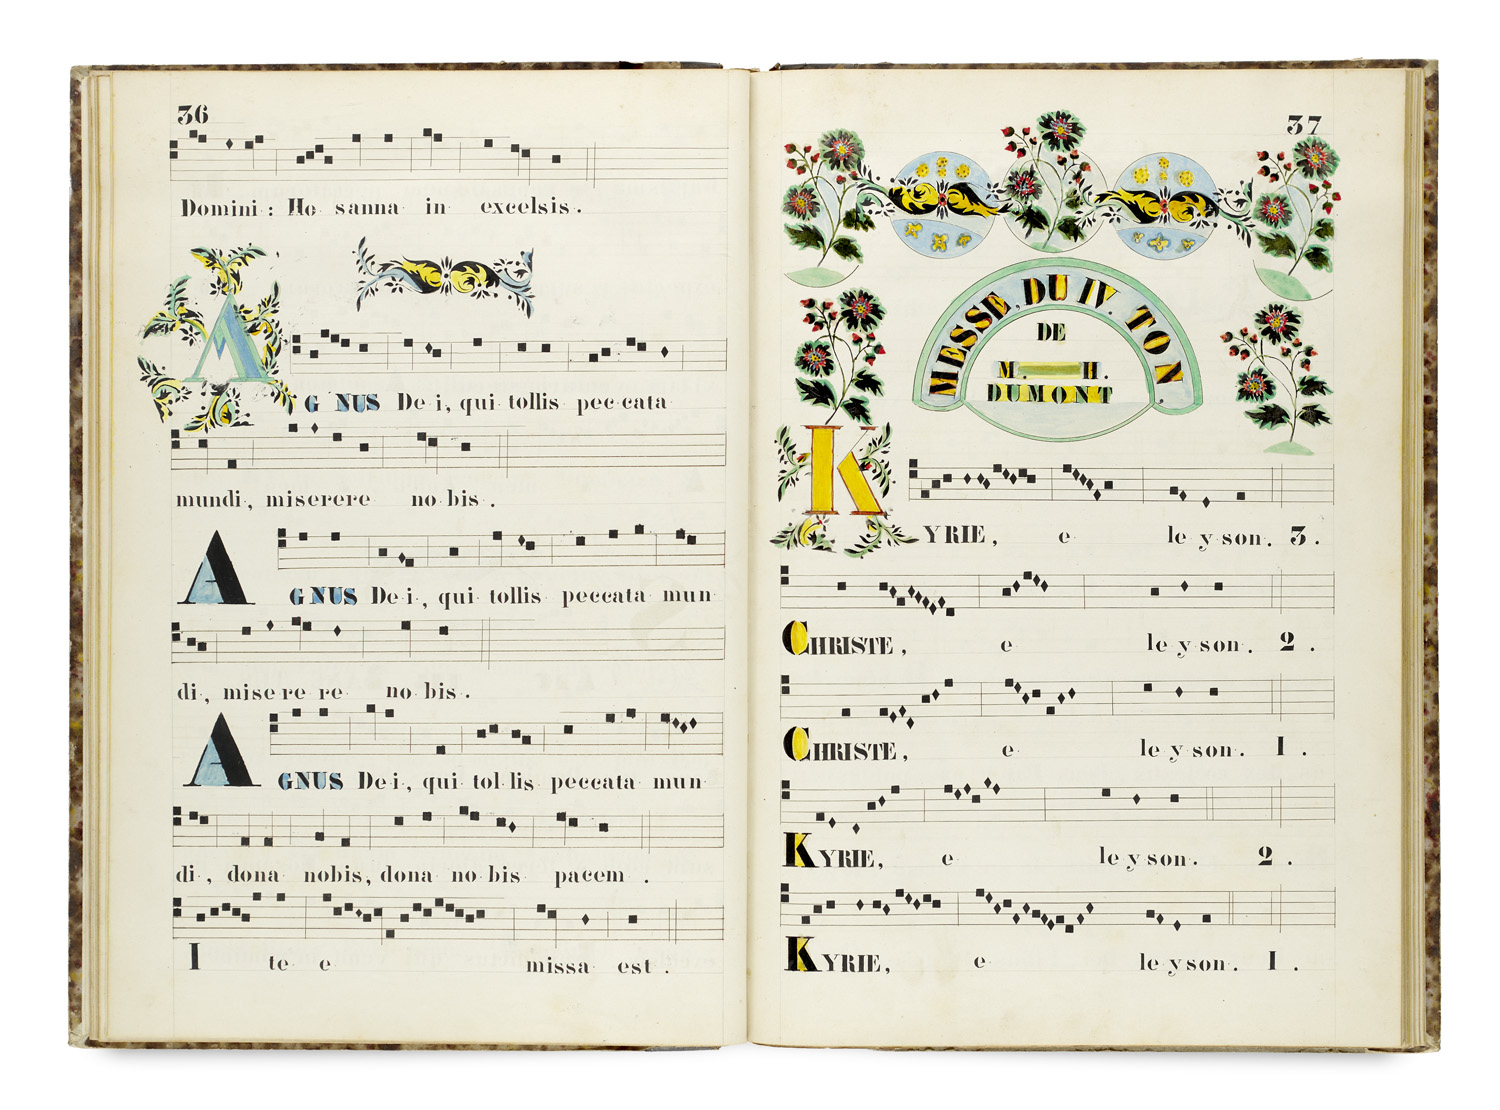 36
Domini : Ho sanna in excelsis .
AGNUS De i , qui tollis pec cata
mundi , miserere no bis .
AGNUS De i , qui tollis peccata mun
di , mise re re no bis .
AGNUS De i , qui tol lis peccata mun
di , dona nobis , dona no bis pacem .
I te e missa est .
37
MESSE , DU IV . TON .
DE
M. H.
DUMONT
KYRIE , e le y son . 3 .
CHRISTE , e le y son . 2 .
CHRISTE , e le y son . 1 .
KYRIE , e le y son . 2 .
KYRIE , e le y son . 1 .